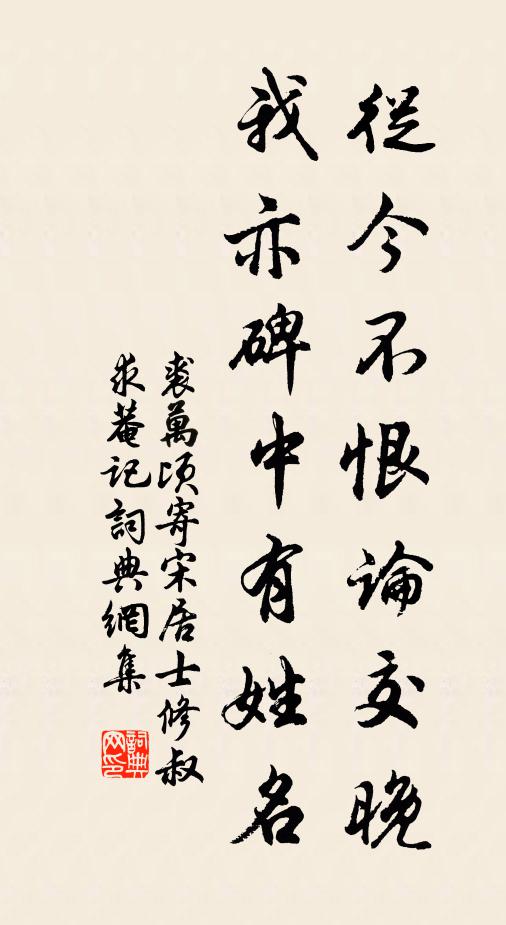 從今不恨論交晚
我亦碑中有姓名
裘萬頃寄宋居士修叔
求菴記詞典網集
詞典
网印